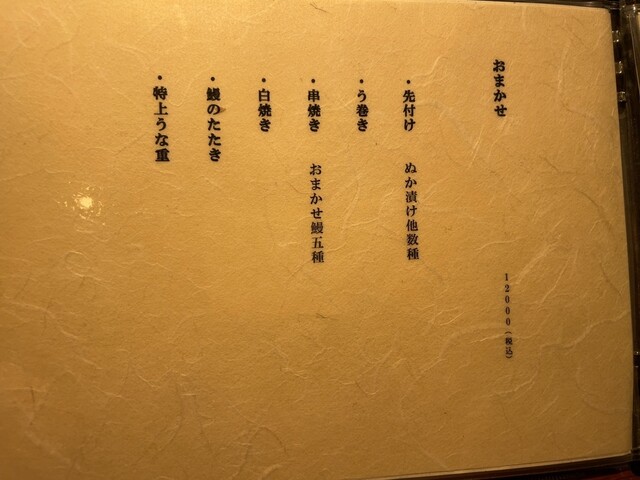 おまかせ 12000(税込)
・先付け ぬか漬け他数種
・う巻き
・串焼き おまかせ鰻五種
・白焼き
・鰻のたたき
・特上うな重